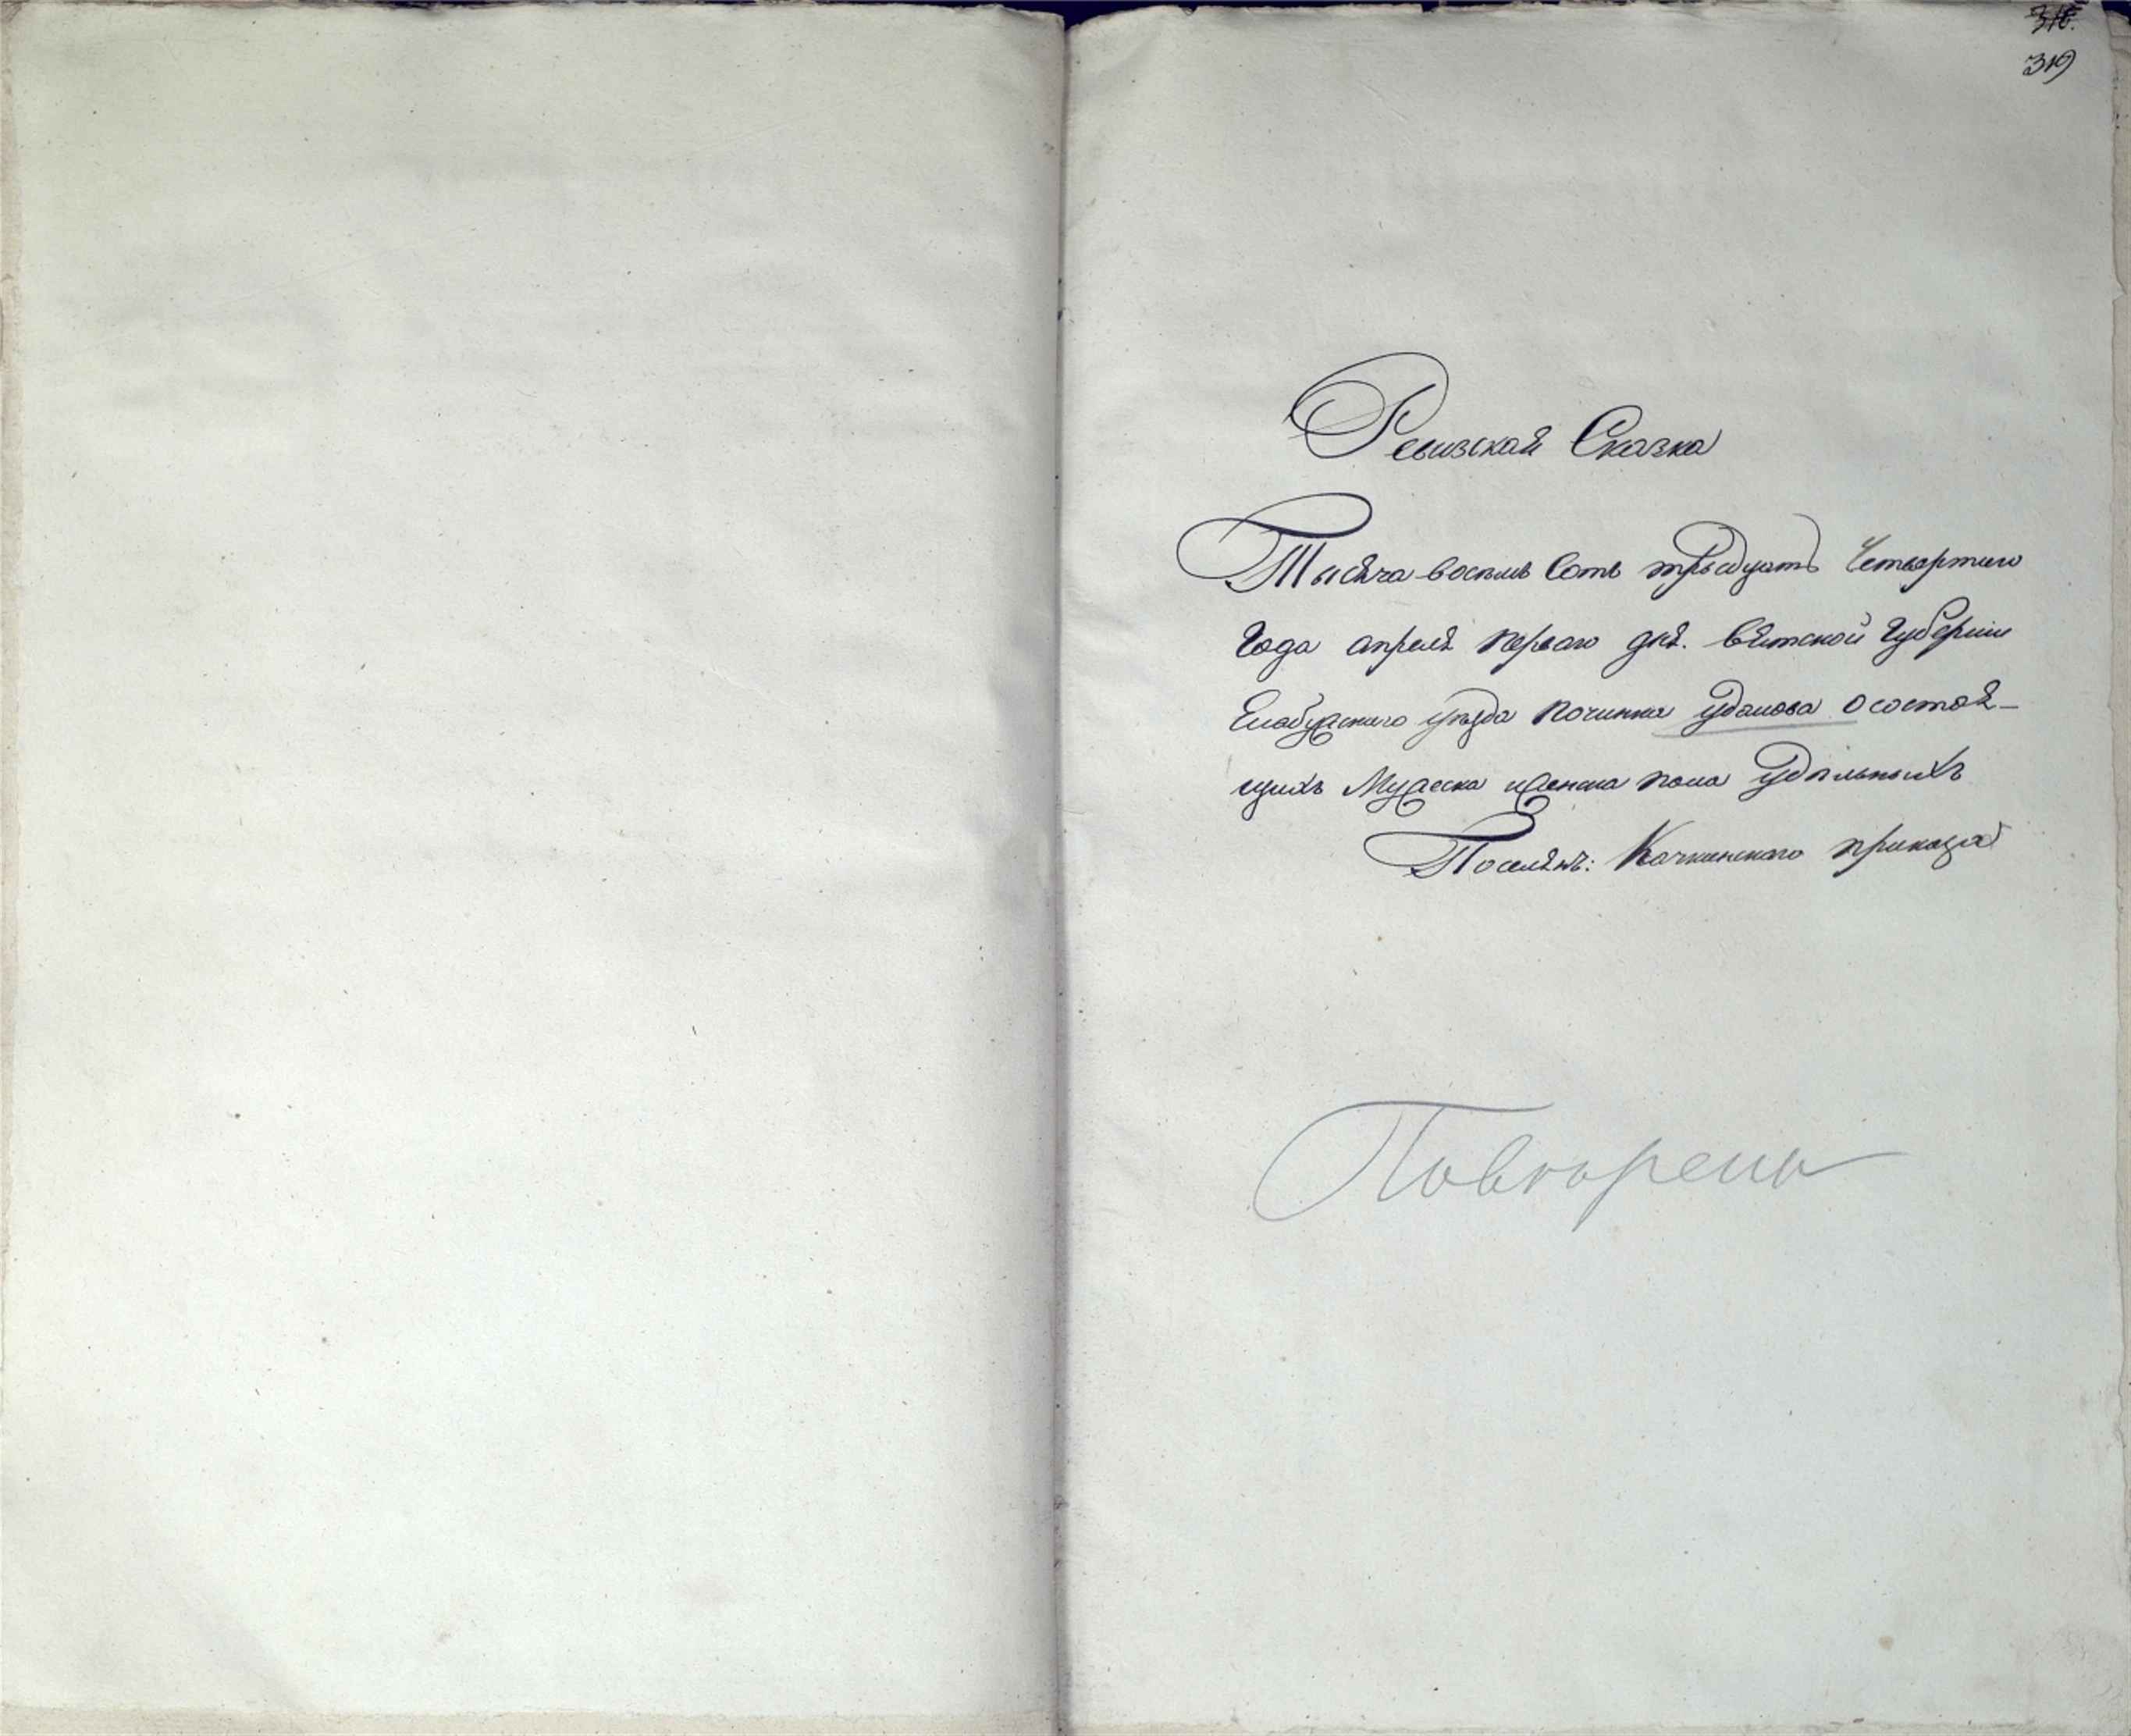 319
Ревизская Сказка
Тысяча восемь Сотъ тридцать Четвертаго
Года апреля перваго дня. Вятской Губернии
Елабужского уезда починка Удалова о состоя-
щихъ Мужеска и женска пола Удельныхъ
Поселянъ: приказа
Повторены